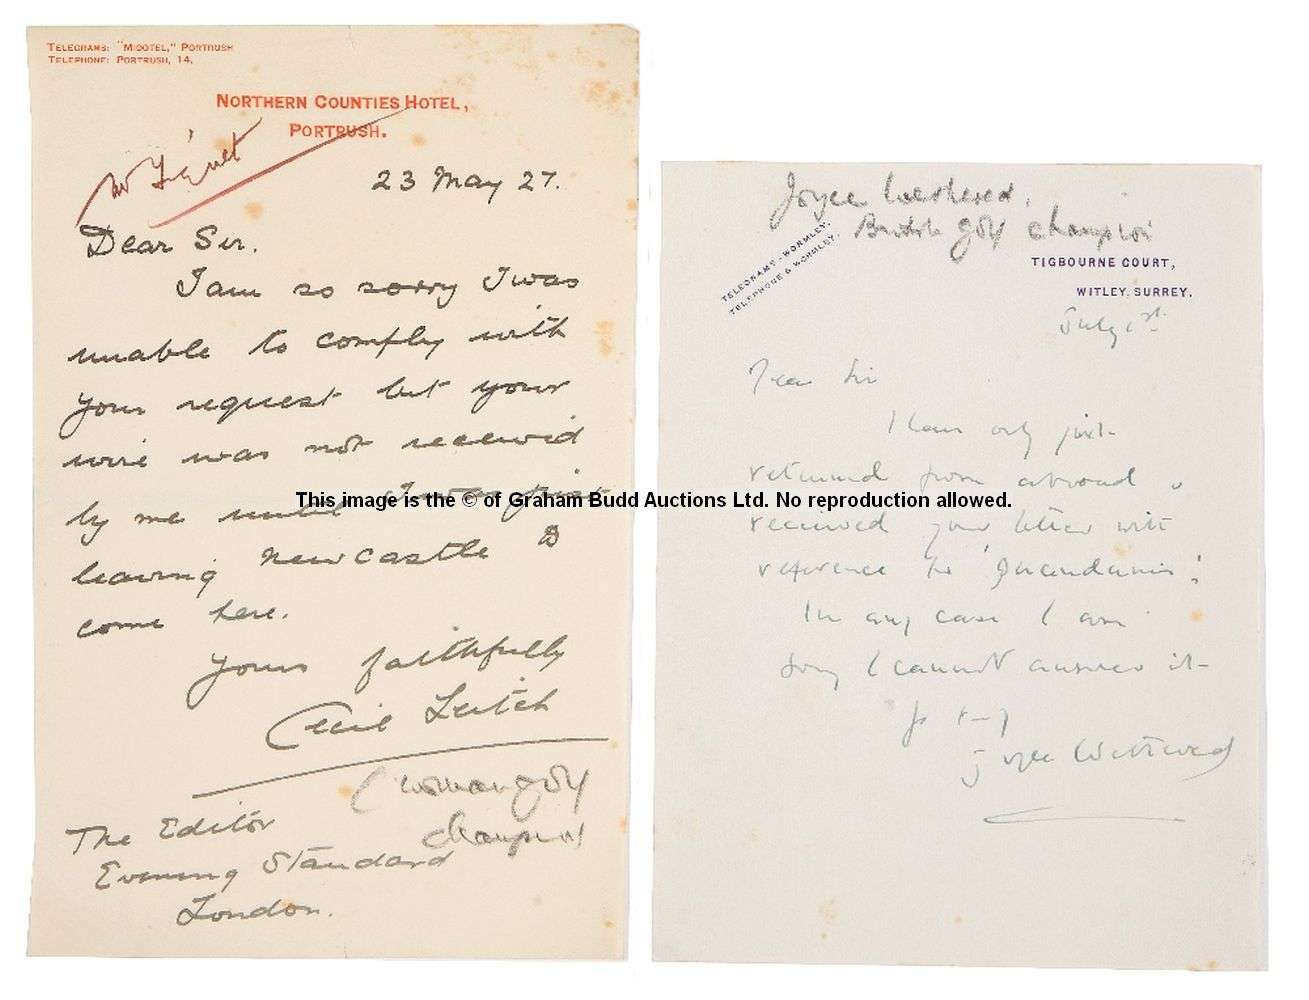 TELEGRAMS: "MIDOTEL," PORTRUSH
TELEPHONE: PORTRUSH, 14.
NORTHERN COUNTIES HOTEL,
PORTRUSH.
Mr
23 May 27.
Dear Sir.
I am so sorry I was
unable to comply with
your request but your
wire was not received
by me until I was just
leaving Newcastle to
come here.
Yours faithfully
Cecil Leitch
(woman golf
champion)
The Editor
Evening Standard
London.
Joyce Wethered,
British golf champion
TELEGRAMS - WORMLEY.
TELEPHONE 6 WORMLEY.
TIGBOURNE COURT,
WITLEY. SURREY.
July 1st
Dear Sir
I have only just
returned from abroad &
received your letter with
reference to
In any case I am
sorry I cannot answer it
Joyce Wethered
This image is the © of Graham Budd Auctions Ltd. No reproduction allowed.